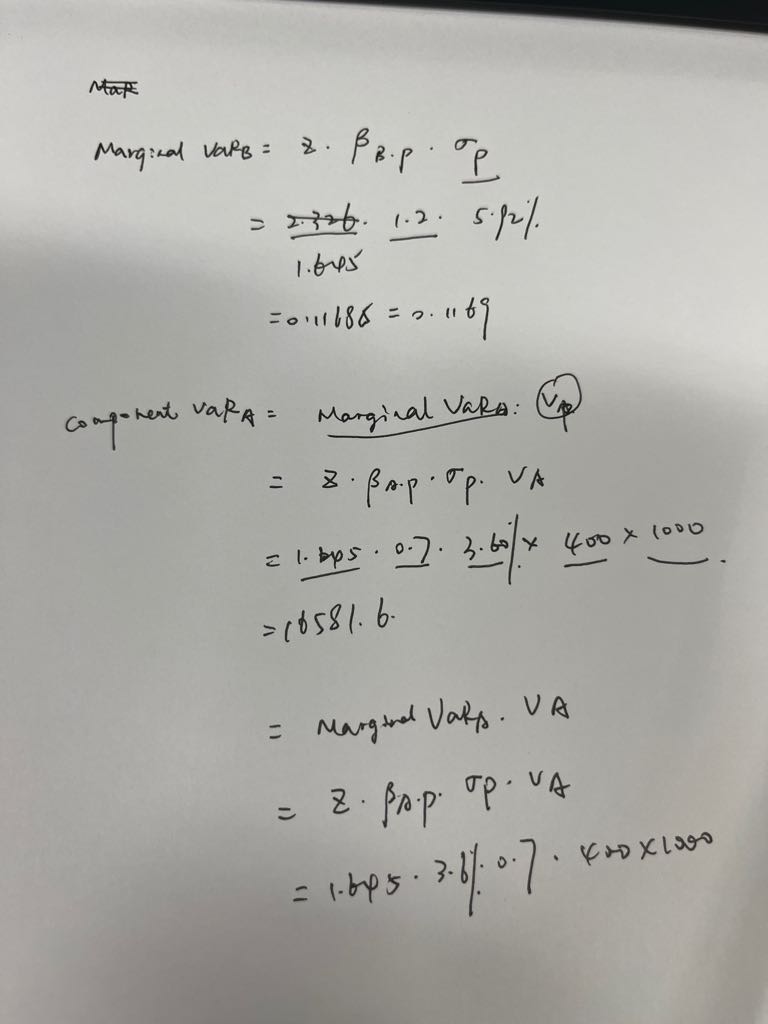 MaR
Marginal VaRB = z · βB.p · σp
= 2.326 · 1.2 · 5.92%
1.645
= 0.11686 = 0.1169
Component VaRA = Marginal VaRA · VAp
= z · βA.p · σp · VA
= 1.645 · 0.7 · 3.60% × 400 × 1000
= 16581.6
= Marginal VaRA · VA
= z · βA.p · σp · VA
= 1.645 · 3.6% · 0.7 · 400 × 1000